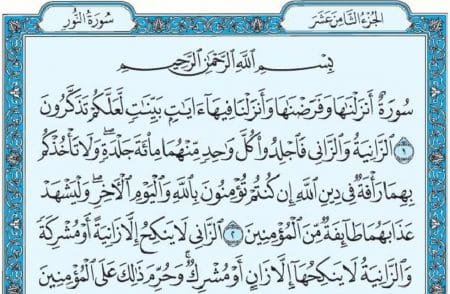 الجزء الثامن عشر
سورة النور
بِسْمِ ٱللَّهِ ٱلرَّحْمَٰنِ ٱلرَّحِيمِ
سُورَةٌ أَنزَلْنَٰهَا وَفَرَضْنَٰهَا وَأَنزَلْنَا فِيهَآ ءَايَٰتٍۭ بَيِّنَٰتٍ لَّعَلَّكُمْ تَذَكَّرُونَ
١ ٱلزَّانِيَةُ وَٱلزَّانِى فَٱجْلِدُوا۟ كُلَّ وَٰحِدٍ مِّنْهُمَا مِا۟ئَةَ جَلْدَةٍ ۖ وَلَا تَأْخُذْكُم
بِهِمَا رَأْفَةٌ فِى دِينِ ٱللَّهِ إِن كُنتُمْ تُؤْمِنُونَ بِٱللَّهِ وَٱلْيَوْمِ ٱلْءَاخِرِ ۖ وَلْيَشْهَدْ
عَذَابَهُمَا طَآئِفَةٌ مِّنَ ٱلْمُؤْمِنِينَ ٢ ٱلزَّانِى لَا يَنكِحُ إِلَّا زَانِيَةً أَوْ مُشْرِكَةً
وَٱلزَّانِيَةُ لَا يَنكِحُهَآ إِلَّا زَانٍ أَوْ مُشْرِكٌ ۚ وَحُرِّمَ ذَٰلِكَ عَلَى ٱلْمُؤْمِنِينَ